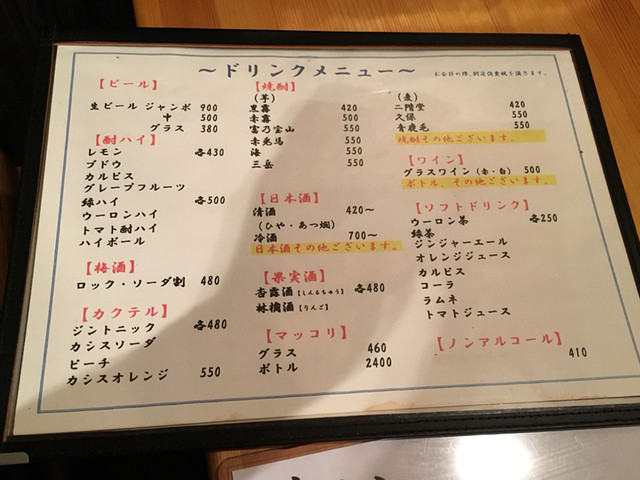 ～ドリンクメニュー～
お会計の際、別途消費税を頂きます。
【ビール】
生ビール ジャンボ 900
中 500
グラス 380
【酎ハイ】
レモン 各430
ブドウ
カルピス
グレープフルーツ
緑ハイ 各500
ウーロンハイ
トマト酎ハイ
ハイボール
【梅酒】
ロック・ソーダ割 480
【カクテル】
ジントニック 各480
カシスソーダ
ピーチ
カシスオレンジ 550
【焼酎】
(芋)
黒霧 420
赤霧 500
富乃宝山 550
赤兎馬 550
海 550
三岳 550
【日本酒】
清酒 420～
(ひや・あつ燗)
冷酒 700～
日本酒その他ございます。
【果実酒】
杏露酒【しんるちゅう】 各480
林檎酒【りんご】
【マッコリ】
グラス 460
ボトル 2400
(麦)
二階堂 420
久保 550
青鹿毛 550
焼酎その他ございます。
【ワイン】
グラスワイン(赤・白) 500
ボトル、その他ございます。
【ソフトドリンク】
ウーロン茶 各250
緑茶
ジンジャーエール
オレンジジュース
カルピス
コーラ
ラムネ
トマトジュース
【ノンアルコール】
410